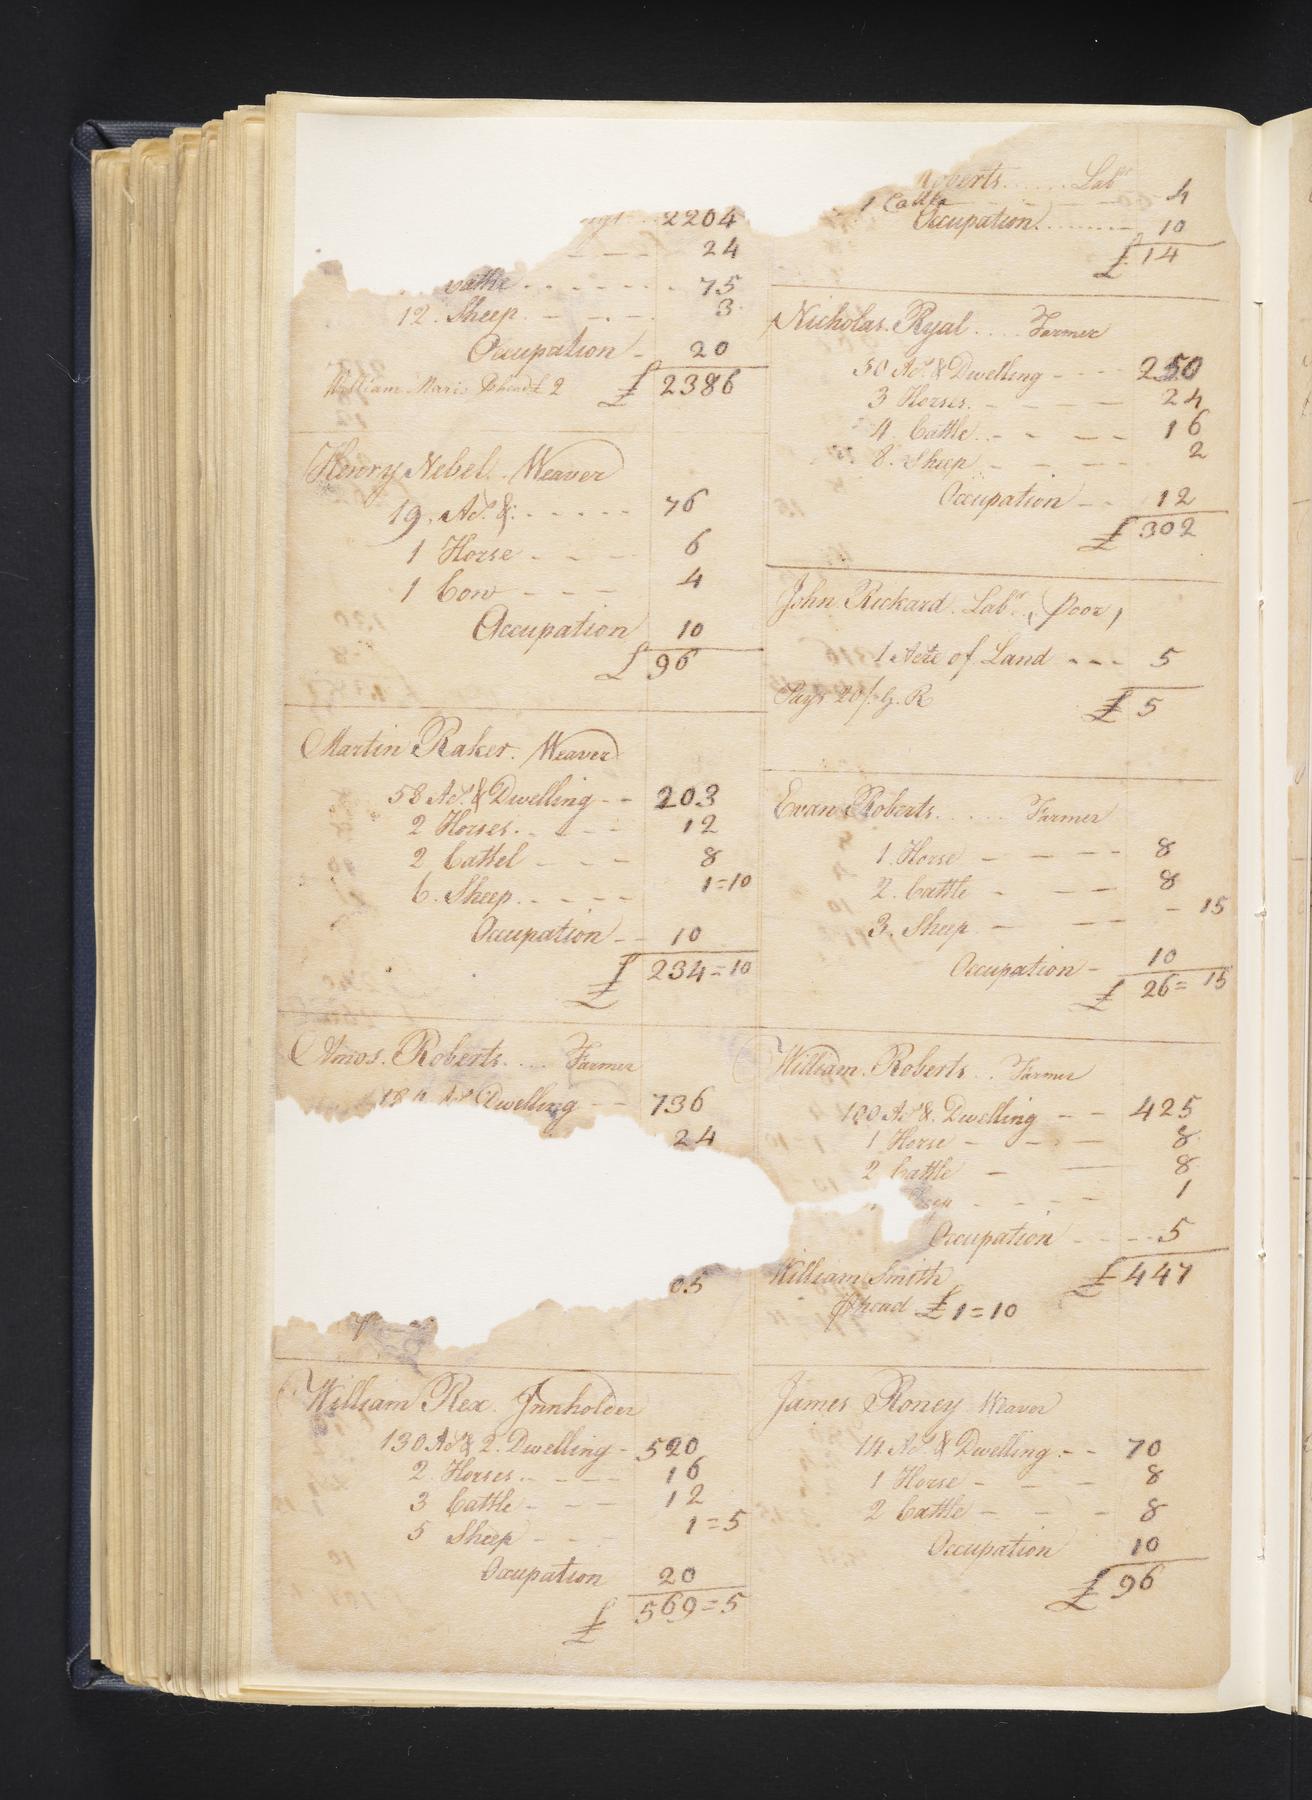 2204
24
Cattle 75
12. Sheep 3
Occupation 20
£ 2386
Henry Nebel. Weaver
19. Acs. &. 76
1 Horse 6
1 Cow 4
Occupation 10
£ 96
Martin Raker. Weaver
58 Acs. & Dwelling 203
2 Horses 12
2 Cattel 8
6. Sheep 1=10
Occupation 10
£ 234=10
Amos. Roberts Farmer
Dwelling 736
24
05
William Rex. Innholder
130 Acs & 2. Dwelling 520
2 Horses 16
3 Cattle 12
5 Sheep 1=5
Occupation 20
£ 569=5
Roberts Labr
1 Cattle 4
Occupation 10
£ 14
Nicholas. Ryal Farmer
50 Acs. & Dwelling 250
3 Horses. 24
4. Cattle 16
8. Sheep 2
Occupation 12
£ 302
John Rickard. Labr. (Poor)
1 Acre of Land 5
Pays 20/ G. R £ 5
Evan Roberts Farmer
1. Horse 8
2. Cattle 8
3. Sheep - 15
Occupation 10
£ 26=15
William. Roberts Farmer
100 Acs &. Dwelling 425
1 Horse 8
2 Cattle 8
1
Occupation 5
William Smith £ 447
Phead £ 1=10
James Roney Weaver
14 Acs. & Dwelling 70
1 Horse 8
2 Cattle 8
Occupation 10
£ 96